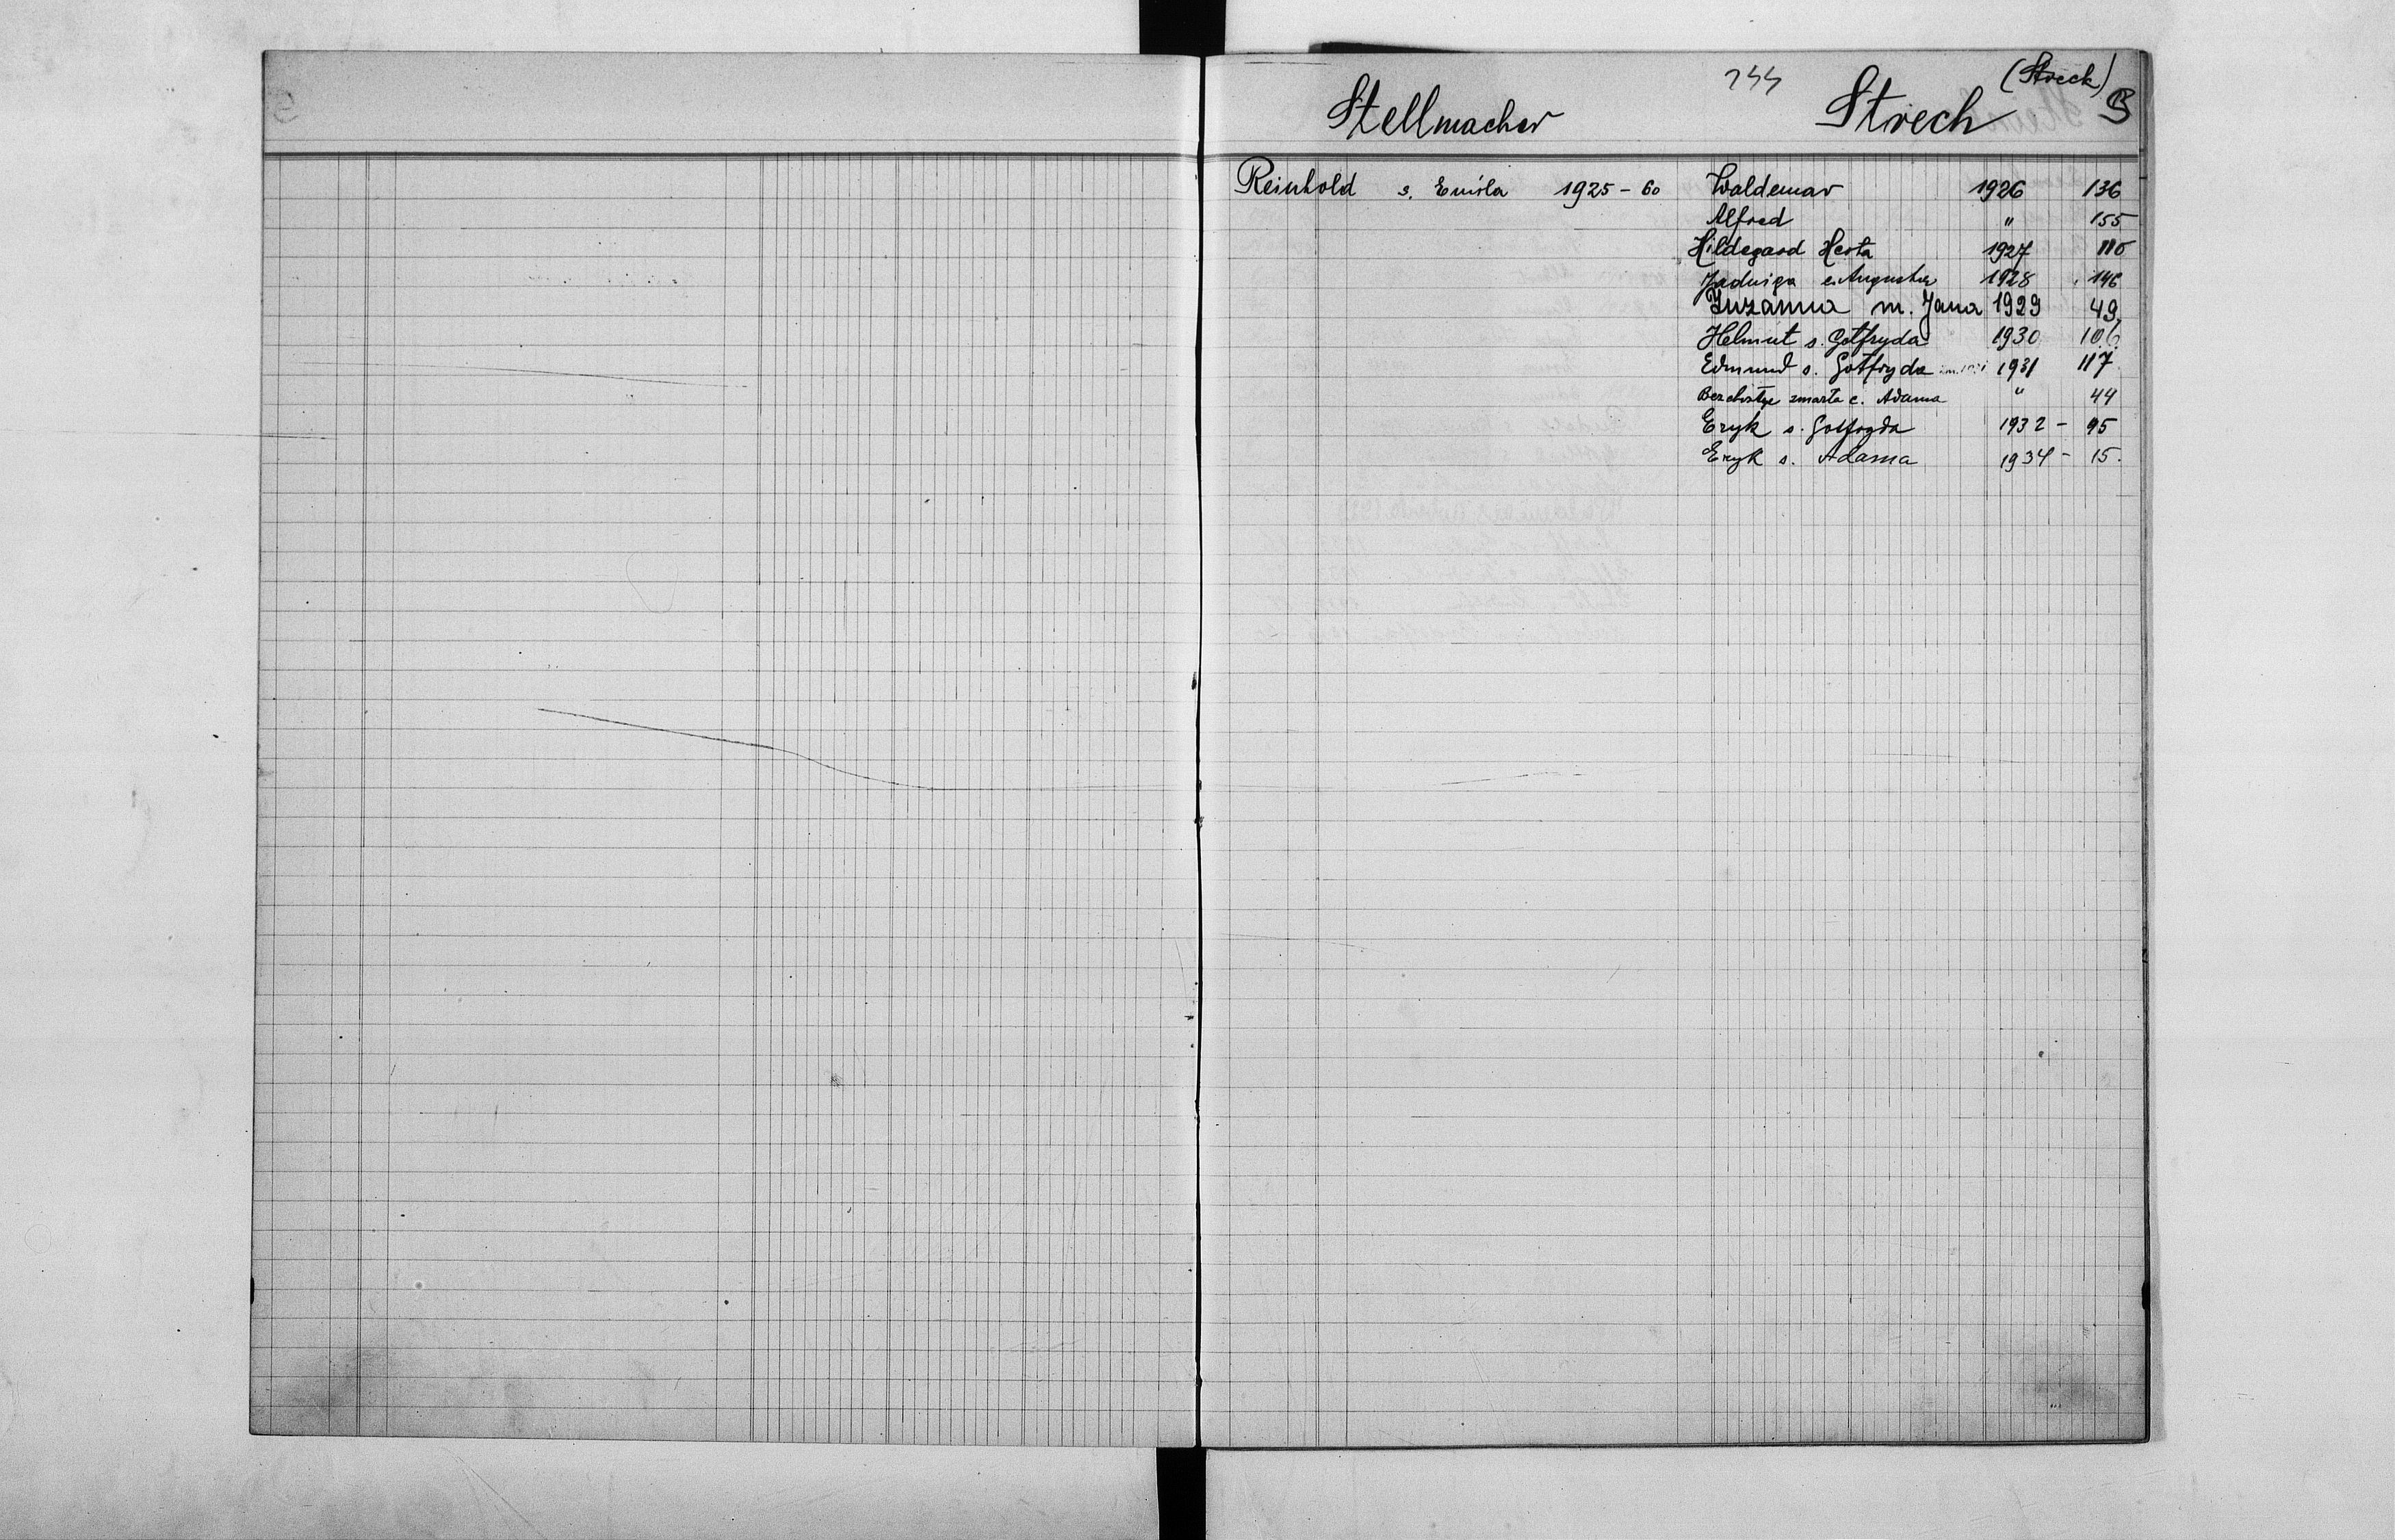 244
(Streck)
Stellmacher
Strech
B
Reinhold s. Emila 1925 - 60
Waldemar 1926 136
Alfred " 155
Hildegard Herta 1927 110
Jadwiga c. Augusta 1928 146
Zuzanna m. Jana 1929 49
Helmut s. Gotfryda 1930 106
Edmund s. Gotfryda 1931 117
Bez chrztu zmarła c. Adama " 44
Eryk s. Gotfryda 1932 - 95
Eryk s. Adama 1934 - 15.